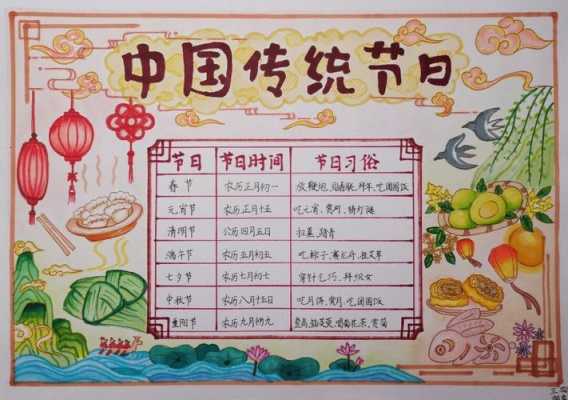 中国传统节日
节日 节日时间 节日习俗
春节 农历正月初一 放鞭炮、贴春联、拜年、吃团圆饭
元宵节 农历正月十五 吃元宵、赏月、猜灯谜
清明节 公历四月五日 扫墓、踏青
端午节 农历五月初五 吃粽子、赛龙舟、挂艾草
七夕节 农历七月初七 穿针乞巧、拜织女
中秋节 农历八月十五日 吃月饼、赏月、吃团圆饭
重阳节 农历九月初九 登高、插茱萸、喝菊花茶、赏菊